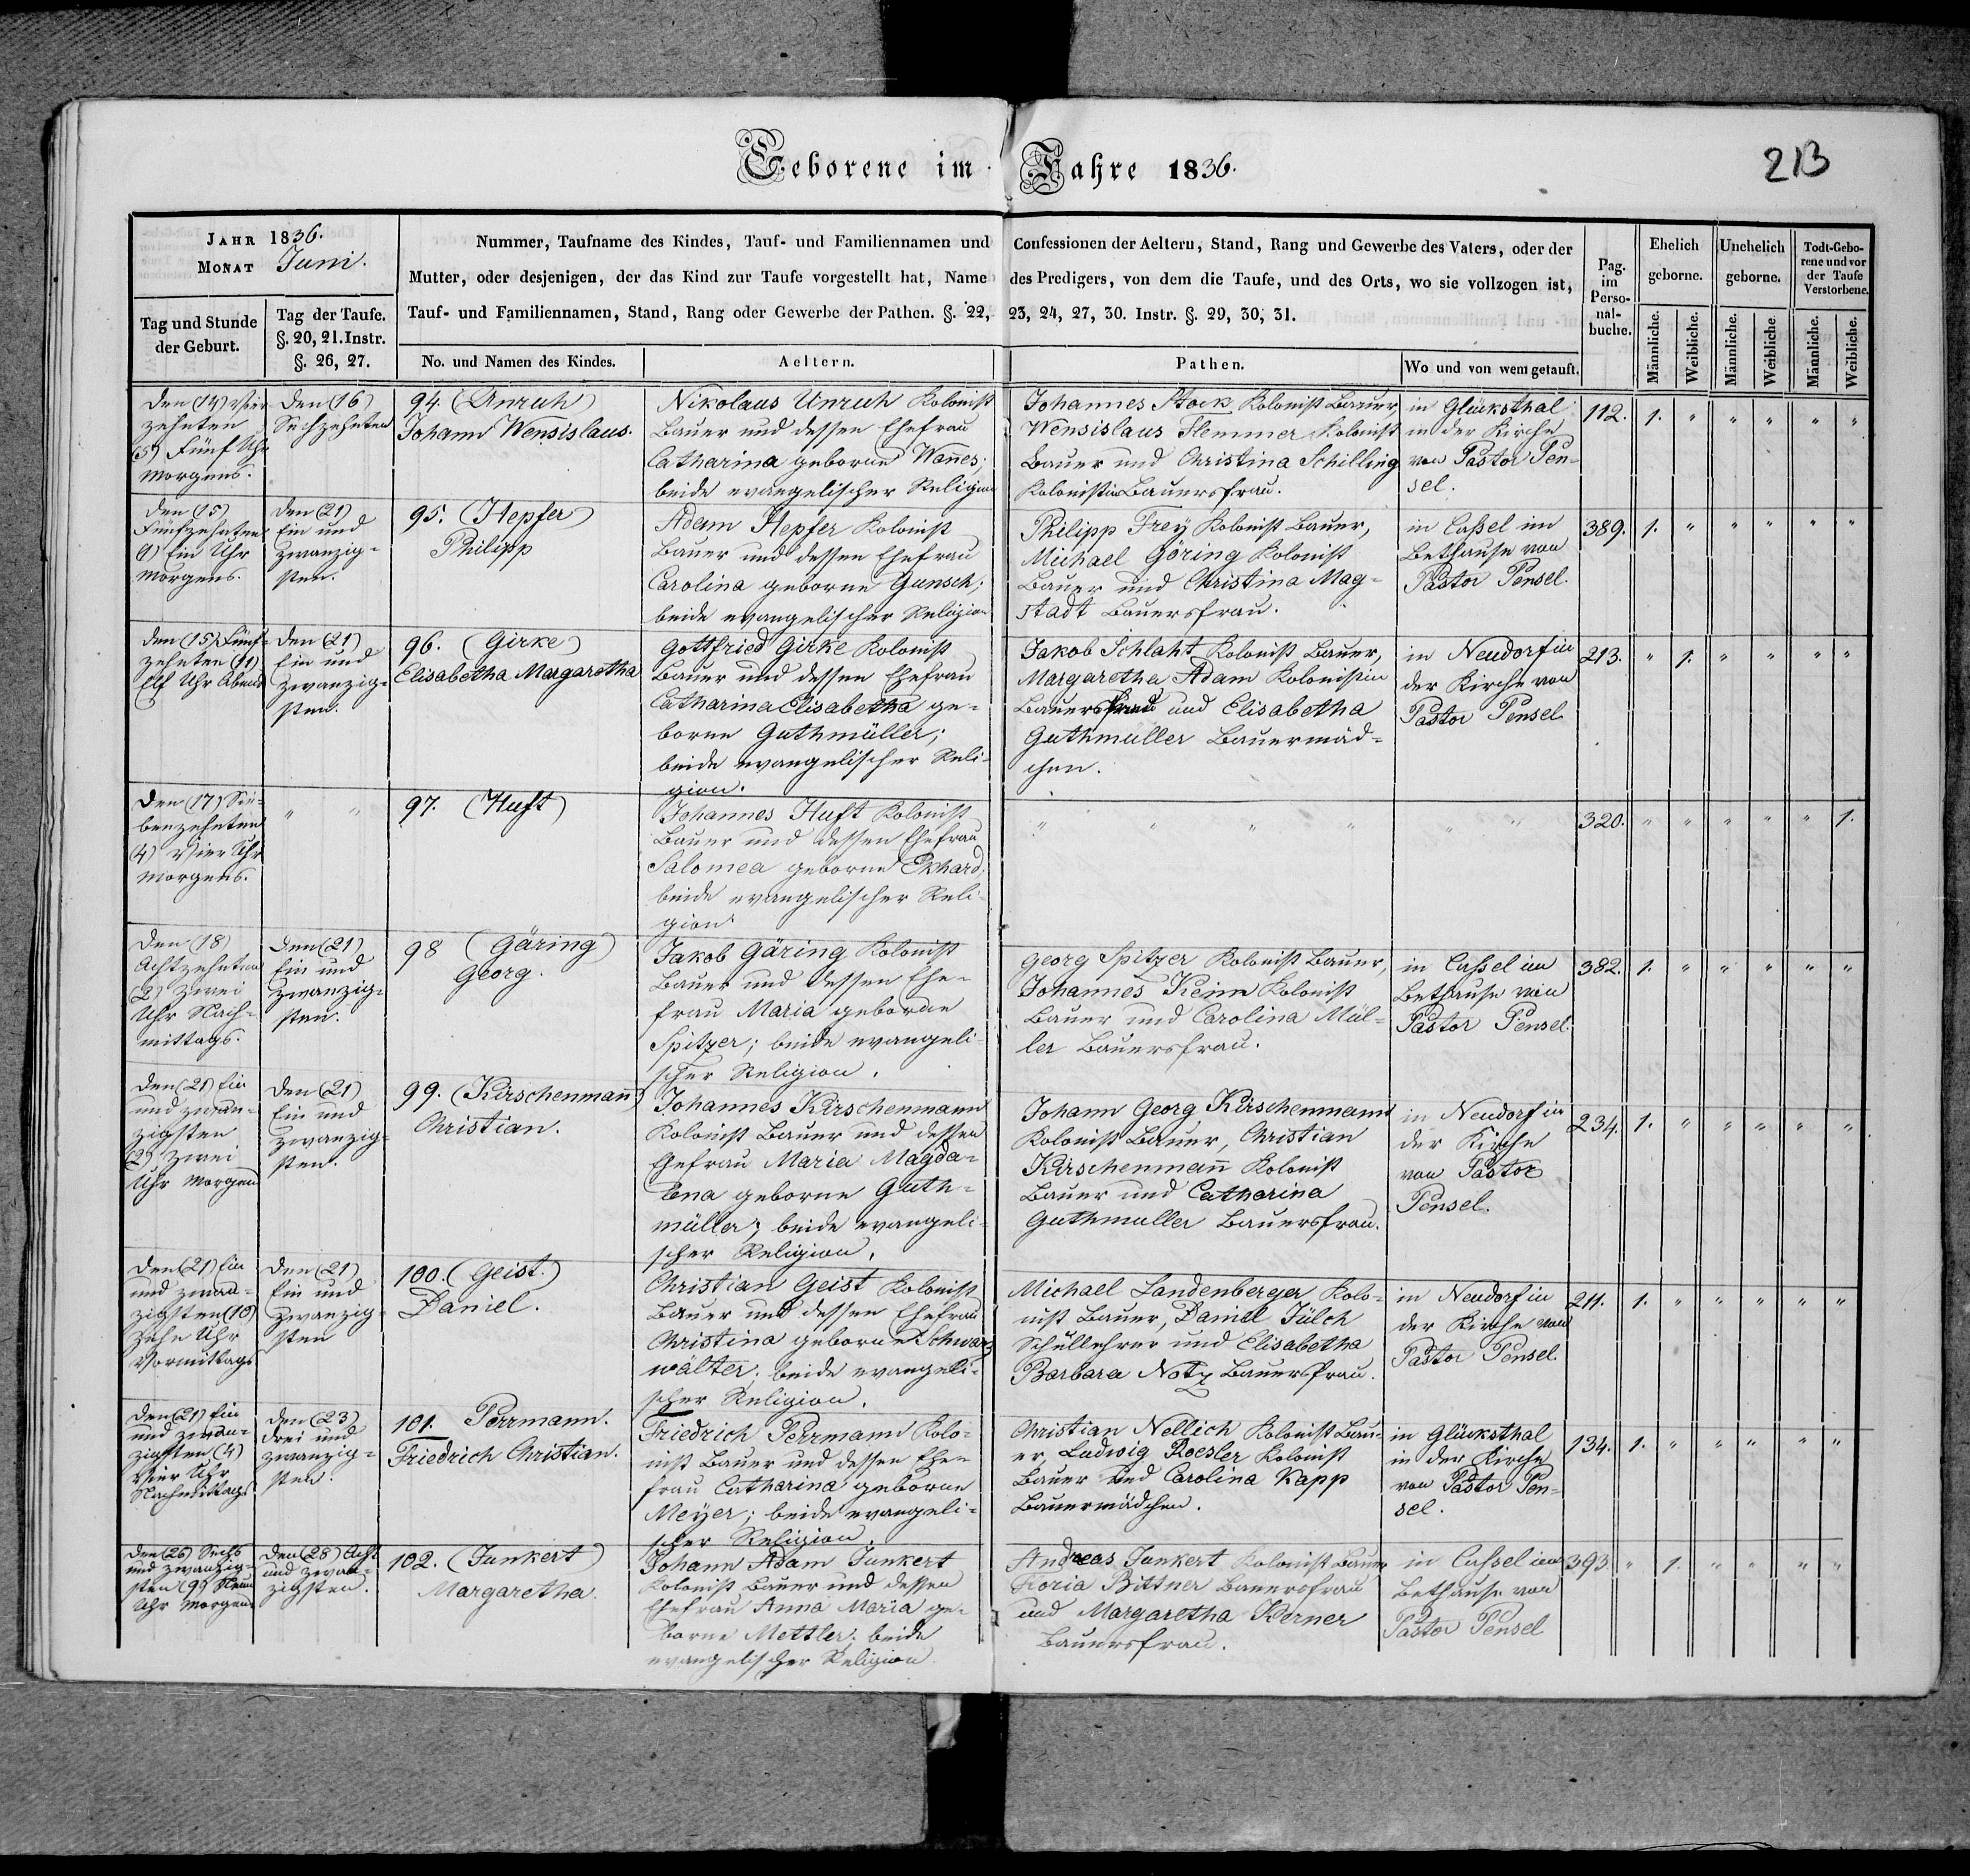 Geborene im Jahre 1836.
213
JAHR 1836.
MONAT Juni.
Tag und Stunde
der Geburt.
Tag der Taufe.
§. 20, 21. Instr.
§. 26, 27.
Nummer, Taufname des Kindes, Tauf- und Familiennamen und Confessionen der Aeltern, Stand, Rang und Gewerbe des Vaters, oder der
Mutter, oder desjenigen, der das Kind zur Taufe vorgestellt hat, Name des Predigers, von dem die Taufe, und des Orts, wo sie vollzogen ist,
Tauf- und Familiennamen, Stand, Rang oder Gewerbe der Pathen. §. 22, 23, 24, 27, 30. Instr. §. 29, 30, 31.
No. und Namen des Kindes.
Aeltern.
Pathen.
Wo und von wem getauft.
Pag.
im
Perso-
nal-
buche.
Ehelich
geborne.
Unehelich
geborne.
Todt-Gebo-
rene und vor
der Taufe
Verstorbene.
Männliche.
Weibliche.
Männliche.
Weibliche.
Männliche.
Weibliche.
Den (14) Vier
zehnten
(5) Fünf Uhr
Morgens.
Den (16)
Sechzehnten
94. (Unruh)
Johann Wensislaus.
Nikolaus Unruh Kolonist
Bauer und dessen Ehefrau
Catharina geborne Wan̄es;
beide evangelischer Religion
Johannes Stock Kolonist Bauer
Wensislaus Flemmer Kolonist
Bauer und Christina Schilling
Kolonistin Bauersfrau.
in Glücksthal
in der Kirche
von Pastor Pen-
sel.
112. 1. " " " " "
Den (15)
Fünfzehnten
(1) Ein Uhr
Morgens.
Den (21)
Ein und
zwanzig-
sten.
95. (Hepfer)
Philipp
Adam Hepfer Kolonist
Bauer und dessen Ehefrau
Carolina geborne Gunsch;
beide evangelischer Religion
Philipp Frey Kolonist Bauer,
Michael Göring Kolonist
Bauer und Christina Mag-
stadt Bauersfrau.
in Cassel im
Bethause von
Pastor Pensel.
389. 1. " " " " "
Den (15) Fünf-
zehnten (11)
Elf Uhr Abends
Den (21)
Ein und
zwanzig-
sten.
96. (Girke)
Elisabetha Margaretha
Gottfried Girke Kolonist
Bauer und dessen Ehefrau
Catharina Elisabetha ge-
borne Guthmüller;
beide evangelischer Reli-
gion.
Jakob Schlaht Kolonist Bauer,
Margaretha Adam Kolonistin
Bauersfrau und Elisabetha
Guthmuller Bauermäd-
chen.
in Neudorf in
der Kirche von
Pastor Pensel
213. " 1. " " " "
Den (17) Sie-
benzehnten
(4) Vier Uhr
Morgens.
" "
97. (Huft)
Johannes Huft Kolonist
Bauer und dessen Ehefrau
Salomea geborne Ekhard;
beide evangelischer Reli-
gion
" " " " " "
320. " " " " " 1.
Den (18)
Achtzehnten
(2) Zwei
Uhr Nach-
mittags.
Den (21)
Ein und
zwanzig-
sten.
98 (Gäring)
Georg.
Jakob Gäring Kolonist
Bauer und dessen Ehe-
frau Maria geborne
Spitzer; beide evangeli-
scher Religion.
Georg Spitzer Kolonist Bauer,
Johannes Keim Kolonist
Bauer und Carolina Mül-
ler Bauersfrau.
in Cassel im
Bethause von
Pastor Pensel.
382. 1. " " " " "
Den (21) Ein
und zwan-
zigsten
(2) Zwei
Uhr Morgens
Den (21)
Ein und
zwanzig-
sten.
99. (Kirschenman̄)
Christian.
Johannes Kirschenmann
Kolonist Bauer und dessen
Ehefrau Maria Magda-
lena geborne Guth-
müller; beide evangeli-
scher Religion.
Johann Georg Kirschenmann
Kolonist Bauer, Christian
Kirschenman̄ Kolonist
Bauer und Catharina
Guthmuller Bauersfrau.
in Neudorf in
der Kirche
von Pastor
Pensel.
234. 1. " " " " "
Den (21) Ein
und zwan-
zigsten (10)
Zehn Uhr
Vormittags
Den (21)
Ein und
zwanzig-
sten
100. (Geist.)
Daniel.
Christian Geist Kolonist
Bauer und dessen Ehefrau
Christina geborne Schwarz
wälter; beide evangeli-
scher Religion.
Michael Landenberger Kolo-
nist Bauer, Daniel Jülch
Schullehrer und Elisabetha
Barbara Notz Bauersfrau.
in Neudorf in
der Kirche von
Pastor Pensel.
211. 1. " " " " "
Den (21) Ein
und zwan-
zigsten (4)
Vier Uhr
Nachmittags
Den (23)
Drei und
zwanzig-
sten.
101. Perrmann.
Friedrich Christian.
Friedrich Perrmann Kolo-
nist Bauer und dessen Ehe-
frau Catharina geborne
Meyer; beide evangeli-
scher Religion.
Christian Nellich Kolonist Bau-
er, Ludwig Roesler Kolonist
Bauer und Carolina Kapp
Bauermädchen.
in Glücksthal
in der Kirche
von Pastor Pen-
sel.
134. 1. " " " " "
Den (26) Sechs
und zwanzig-
sten (9) Neun
Uhr Morgens
Den (28) Acht
und zwan-
zigsten.
102. (Junkert)
Margaretha.
Johann Adam Junkert
Kolonist Bauer und dessen
Ehefrau Anna Maria ge-
borne Mettler; beide
evangelischer Religion
Andreas Junkert Kolonist Bauer
Bittner Bauersfrau
und Margaretha Kerner
Bauersfrau.
in Cassel im
Bethause von
Pastor Pensel
393. " 1. " " " "